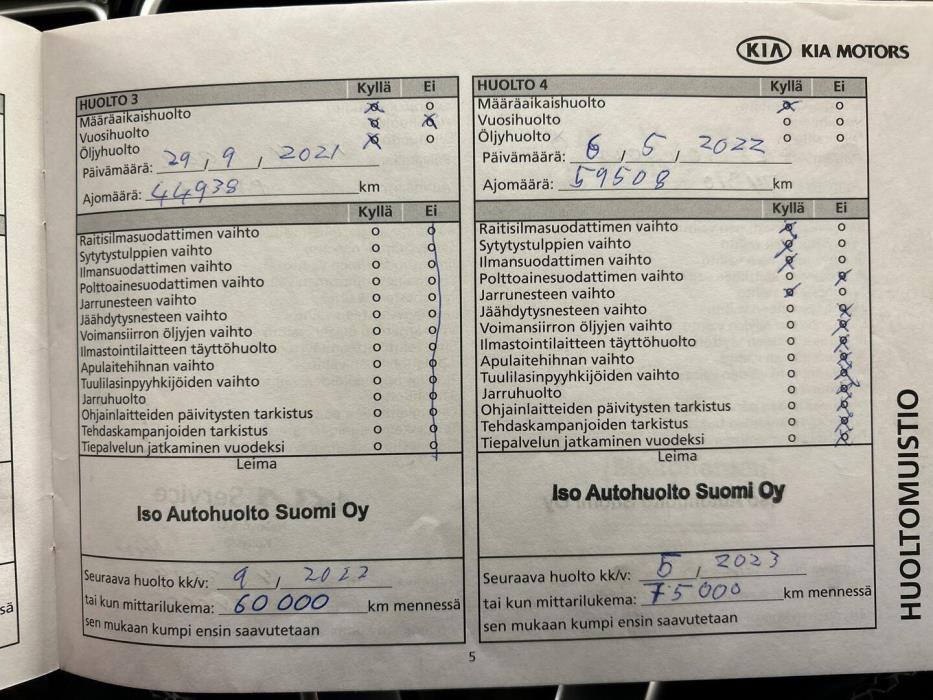 KIA KIA MOTORS
HUOLTO 3 Kyllä Ei
Määräaikaishuolto
Vuosihuolto
Öljyhuolto
Päivämäärä: 29, 9, 2021
Ajomäärä: 44938 km
Kyllä Ei
Raitisilmasuodattimen vaihto
Sytytystulppien vaihto
Ilmansuodattimen vaihto
Polttoainesuodattimen vaihto
Jarrunesteen vaihto
Jäähdytysnesteen vaihto
Voimansiirron öljyjen vaihto
Ilmastointilaitteen täyttöhuolto
Apulaitehihnan vaihto
Tuulilasinpyyhkijöiden vaihto
Jarruhuolto
Ohjainlaitteiden päivitysten tarkistus
Tehdaskampanjoiden tarkistus
Tiepalvelun jatkaminen vuodeksi
Leima
Iso Autohuolto Suomi Oy
Seuraava huolto kk/v: 9, 2022
tai kun mittarilukema: 60 000 km mennessä
sen mukaan kumpi ensin saavutetaan
HUOLTO 4 Kyllä Ei
Määräaikaishuolto
Vuosihuolto
Öljyhuolto
Päivämäärä: 6, 5, 2022
Ajomäärä: 59508 km
Kyllä Ei
Raitisilmasuodattimen vaihto
Sytytystulppien vaihto
Ilmansuodattimen vaihto
Polttoainesuodattimen vaihto
Jarrunesteen vaihto
Jäähdytysnesteen vaihto
Voimansiirron öljyjen vaihto
Ilmastointilaitteen täyttöhuolto
Apulaitehihnan vaihto
Tuulilasinpyyhkijöiden vaihto
Jarruhuolto
Ohjainlaitteiden päivitysten tarkistus
Tehdaskampanjoiden tarkistus
Tiepalvelun jatkaminen vuodeksi
Leima
Iso Autohuolto Suomi Oy
Seuraava huolto kk/v: 5, 2023
tai kun mittarilukema: 75 000 km mennessä
sen mukaan kumpi ensin saavutetaan
HUOLTOMUISTIO
5
sä